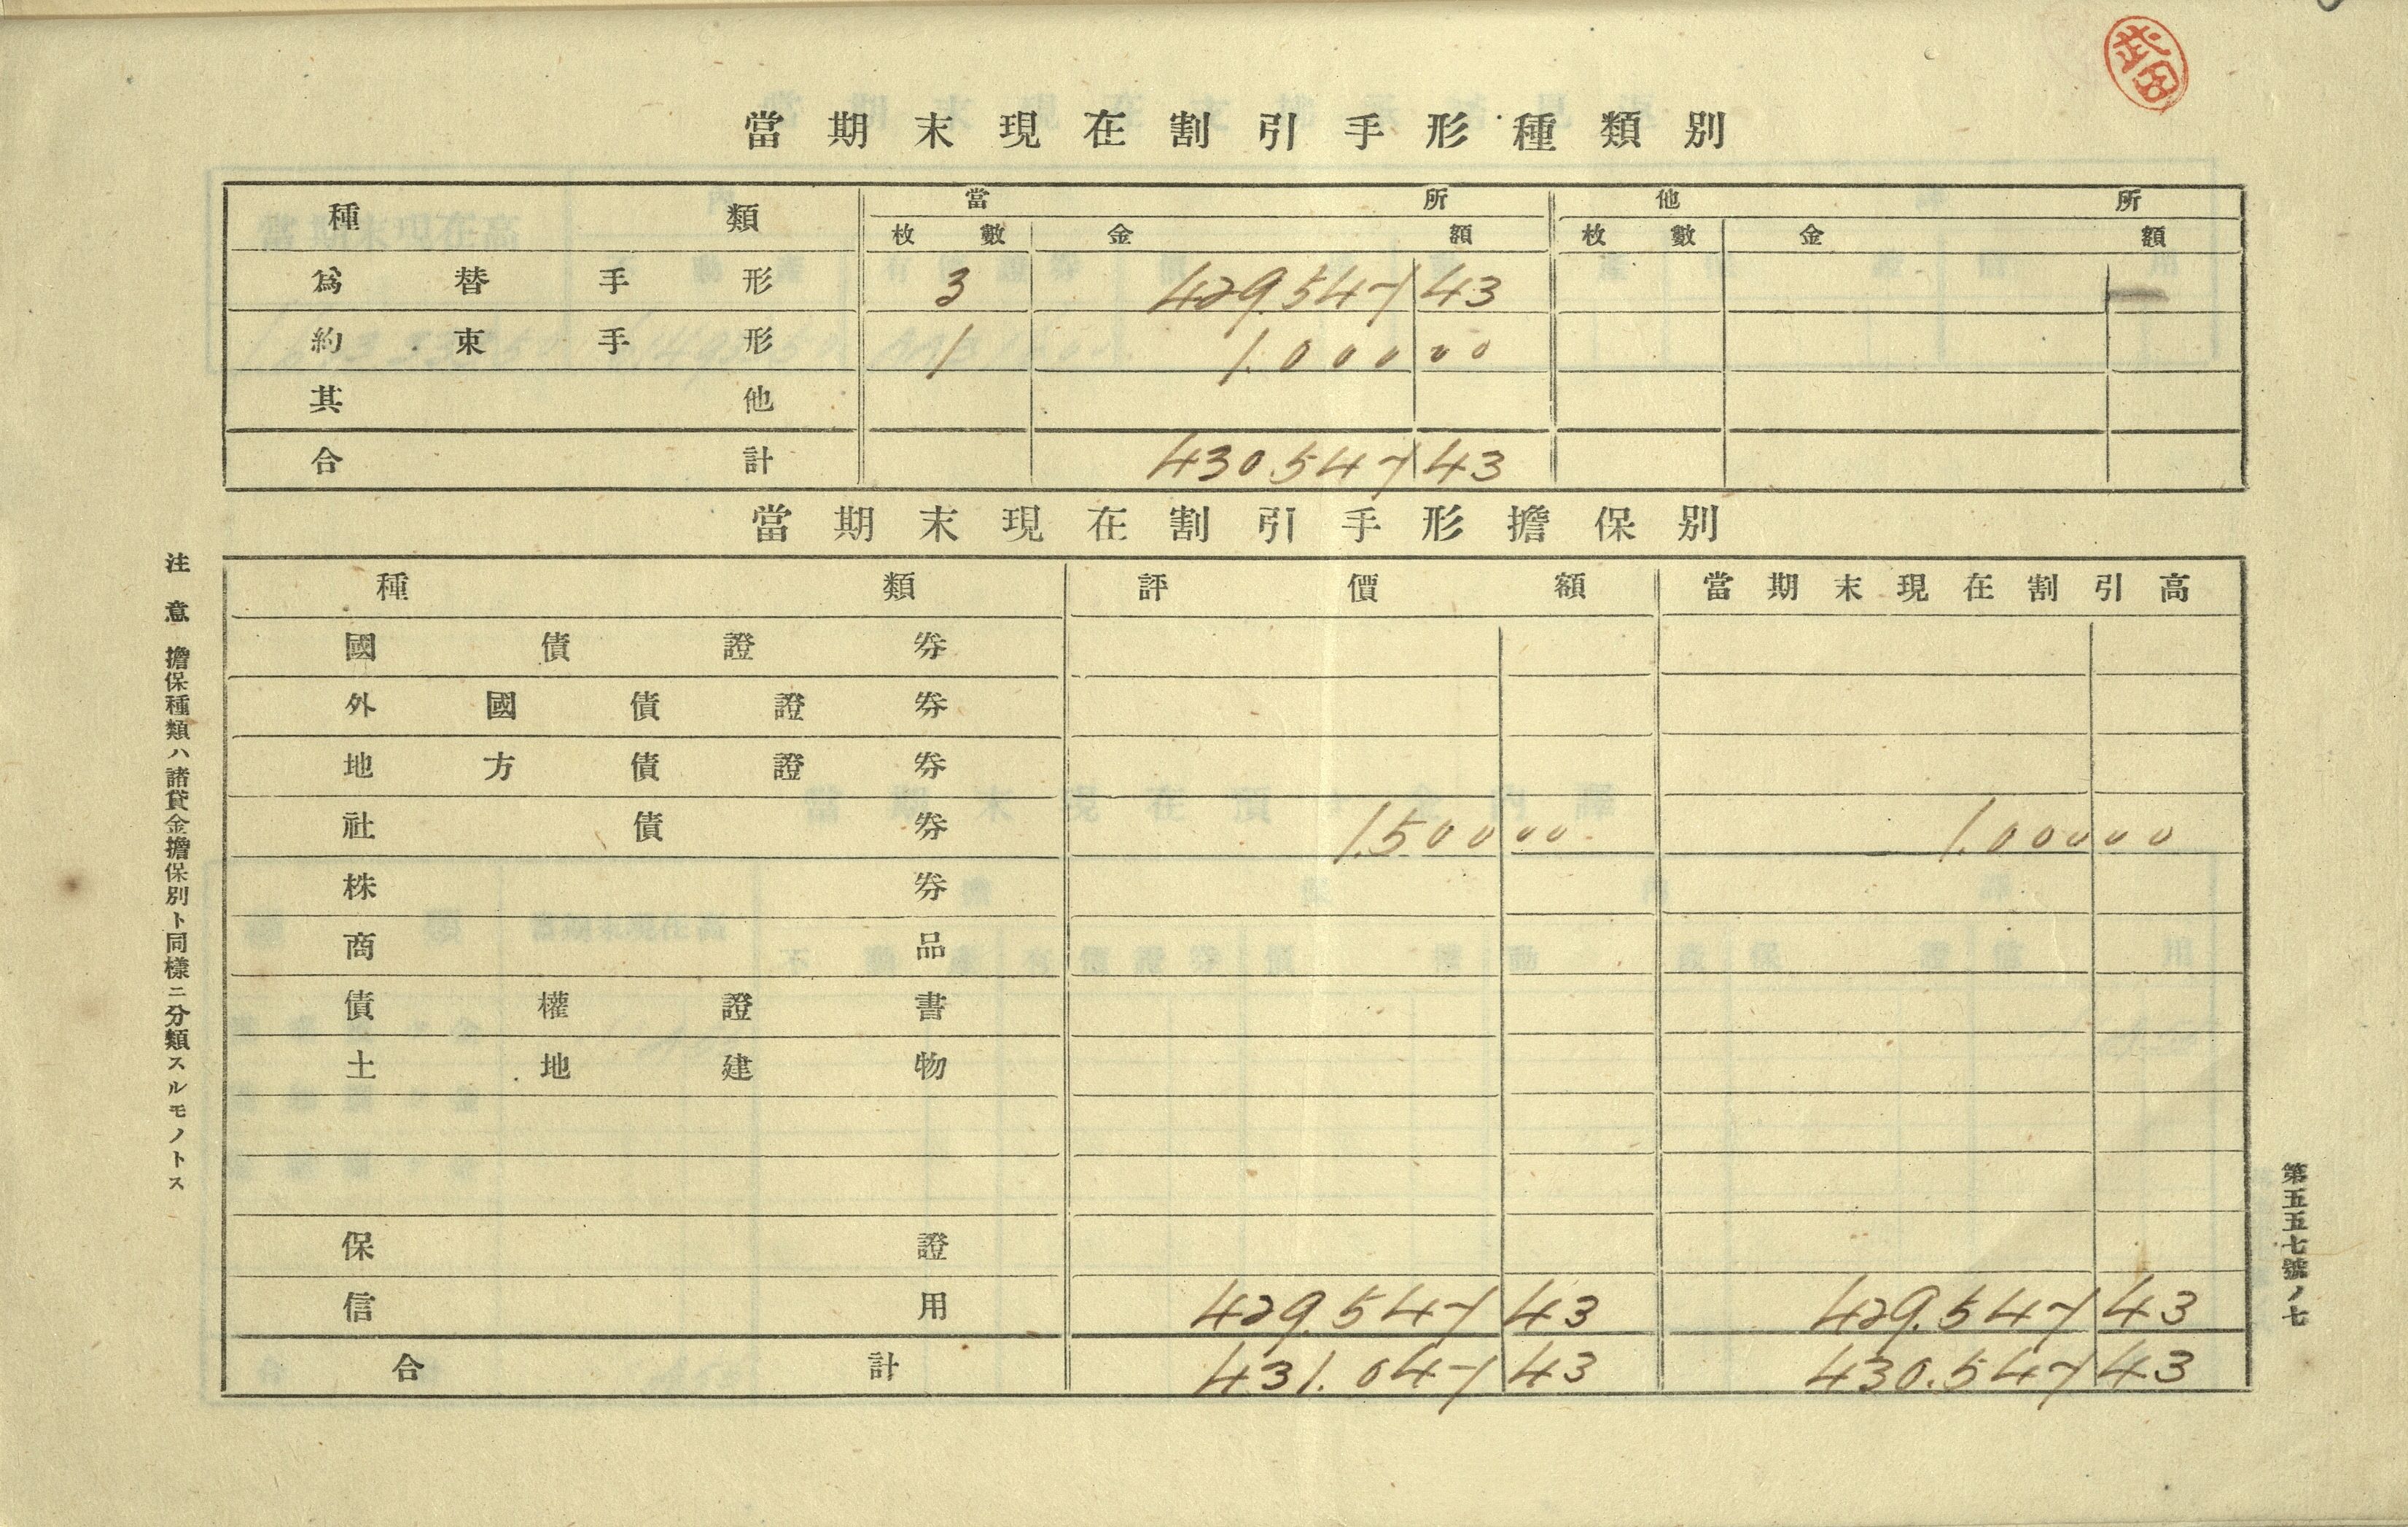 武田
當期末現在割引手形種類別
種類 當所 他所
枚數 金額 枚數 金額
爲替手形 3 429.547 43
約束手形 1 1.000 00
其他
合計 430.547 43
當期末現在割引手形擔保別
種類 評價額 當期末現在割引高
國債證券
外國債證券
地方債證券
社債券 1.500 00 1.000 00
株券
商品
債權證書
土地建物
保證
信用 429.547 43 429.547 43
合計 431.047 43 430.547 43
注意 擔保種類ハ諸貸金擔保別ト同樣ニ分類スルモノトス
第五五七號ノ七